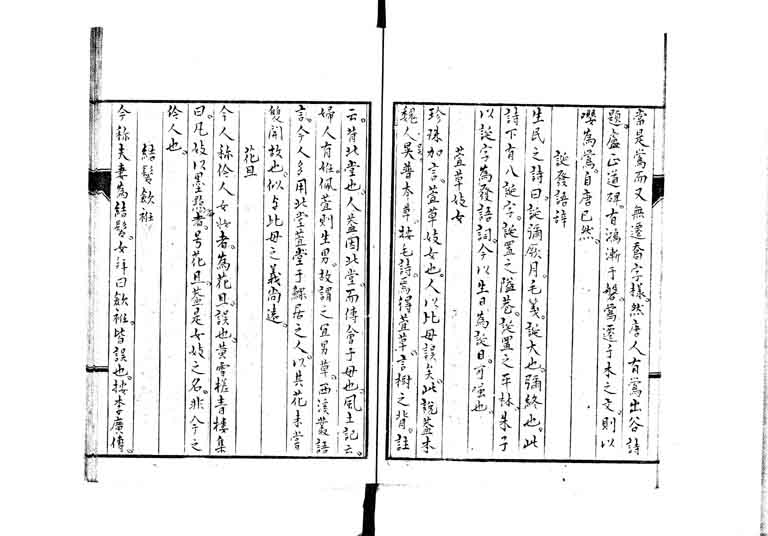 當是鶯而又無遷喬字樣。然唐人有鶯出谷詩
題。盧正道碑。有鴻漸于磐。鶯遷于木之文。則以
嚶為鶯。自唐已然。
誕發語辭
生民之詩曰。誕彌厥月。毛箋誕大也。彌終也。此
詩下有八誕字。誕置之隘巷。誕置之平林。朱子
以誕字為發語詞。今以生日為誕日。可嗤也。
萱草妓女
珍珠船言。萱草妓女也。人以比母誤矣。此說蓋本
魏人吳普本草。按毛詩焉得萱草。言樹之背。註
云。背北堂也。人蓋因北堂。而傅會于母也。風土記云。
婦人有姙。佩萱則生男。故謂之宜男草。西溪叢語
言。今人多用北堂萱堂于鰥居之人。以其花未嘗
雙開故也。似与比母之義尚遠。
花旦
今人称伶人女妝者。為花旦。誤也。黃雪槎青樓集
曰。凡妓以墨點者。号花旦。蓋是女妓之名。非今之
伶人也。
結髮斂衽
今称夫妻為結髮。女拜曰斂衽。皆誤也。按李廣傳。